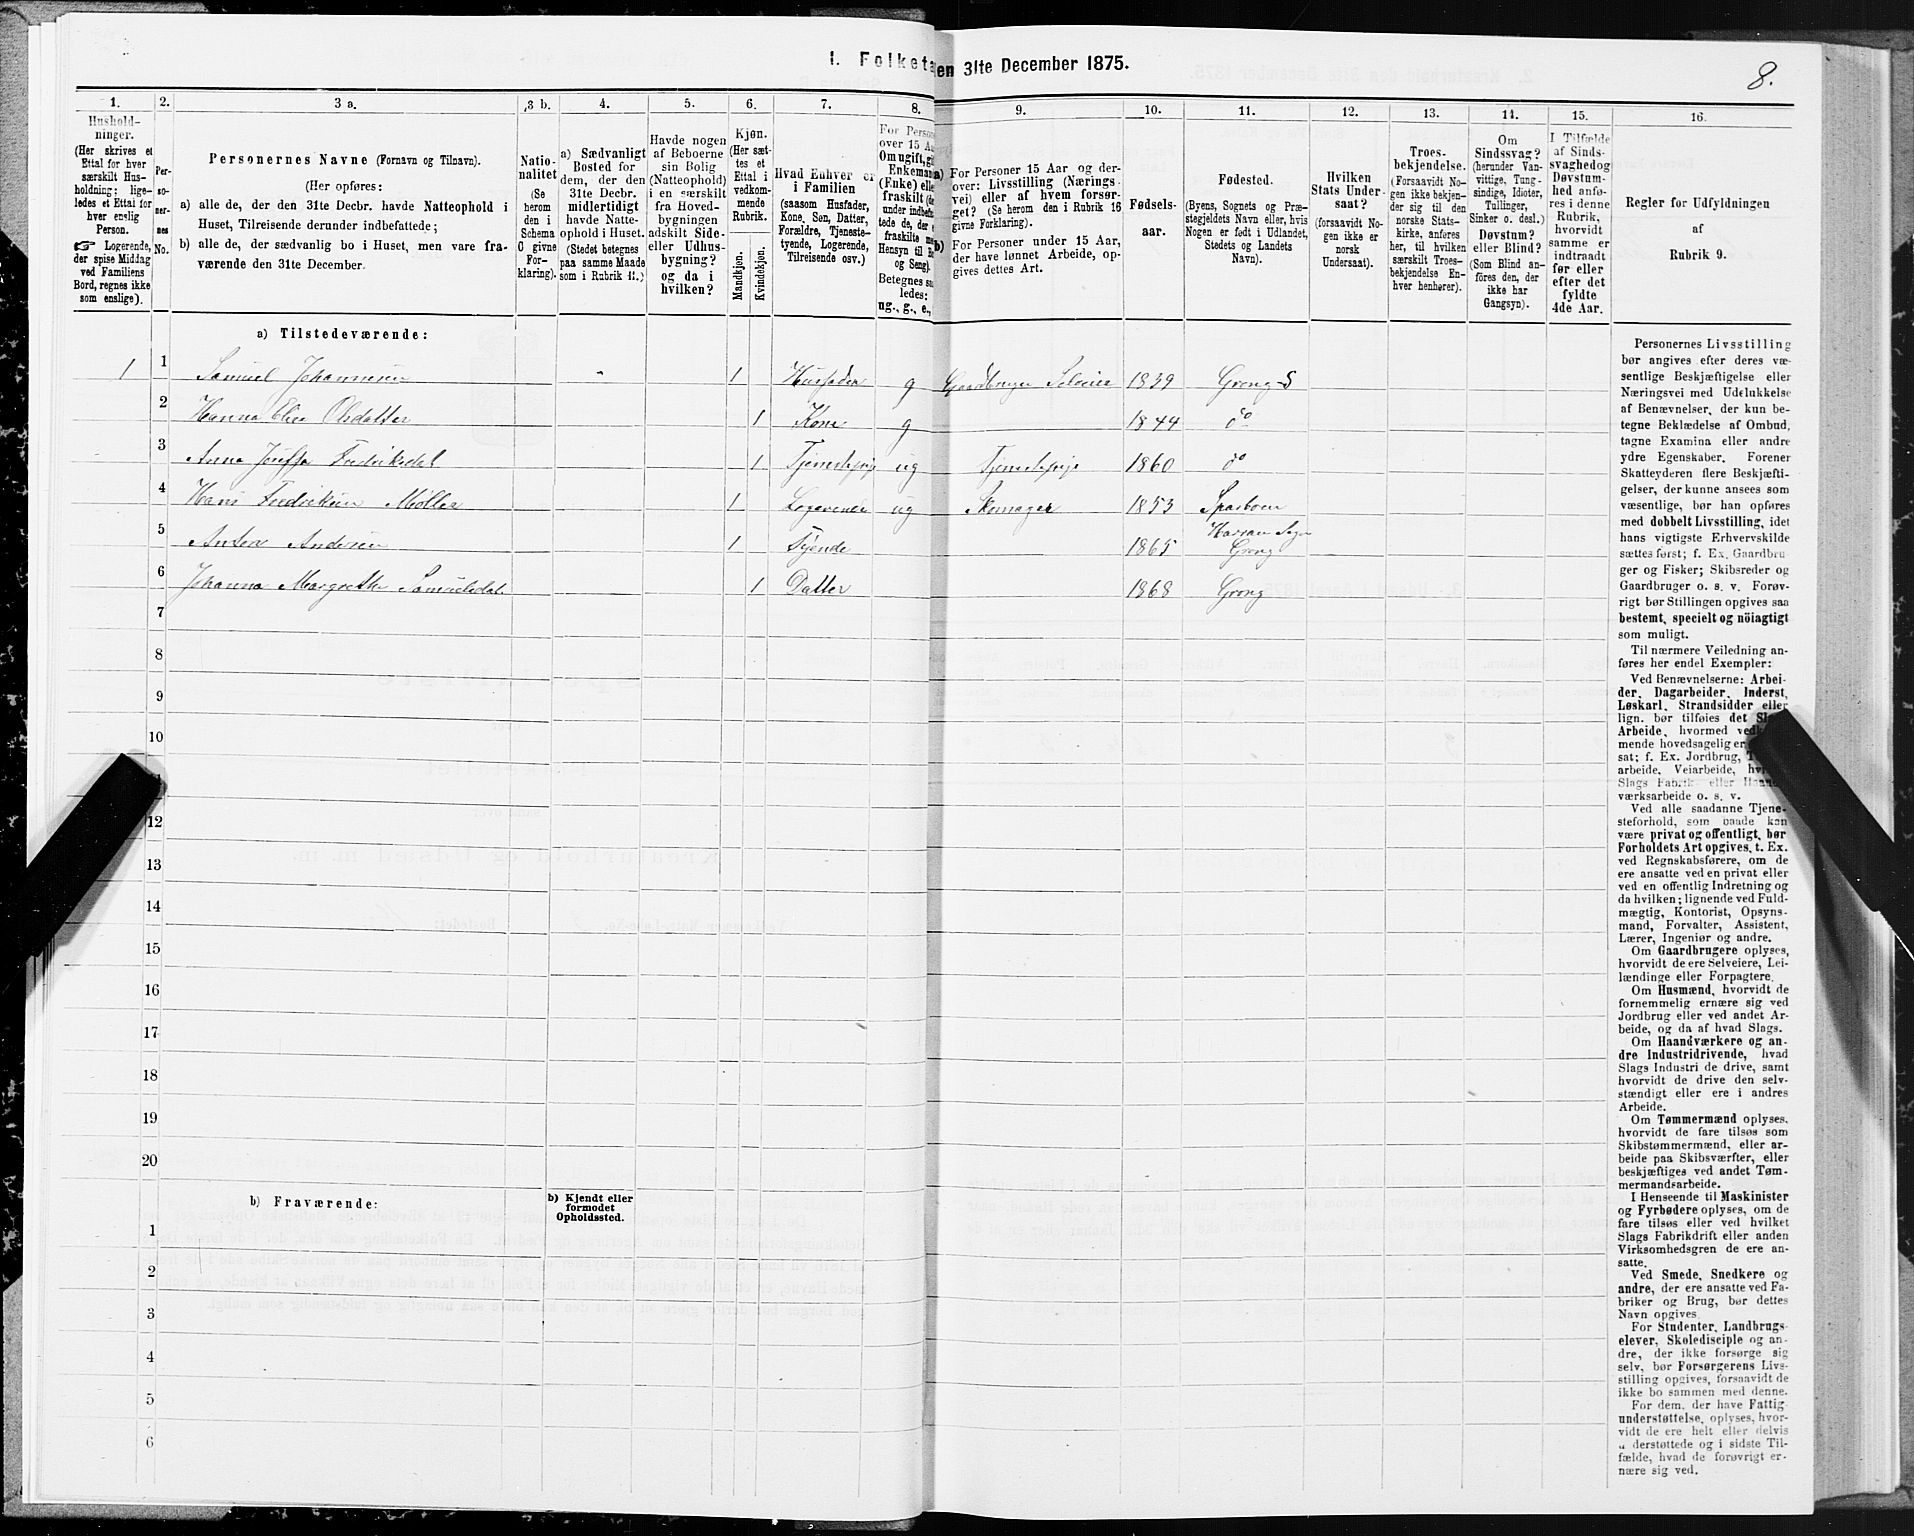 1. Folketa
en 31te December 1875.
8.
1.
2.
3 a.
3 b.
4.
5.
6.
7.
8.
9.
10.
11.
12.
13.
14.
15.
16.
Hushold-
ninger.
(Her skrives et
Ettal for hver
særskilt Hus-
holdning; lige-
ledes et Ettal for
hver enslig
Person.
☞ Logerende,
der spise Middag
ved Familiens
Bord, regnes ikke
som enslige).
Per-
so-
ner-
nes
No.
Personernes Navne (Fornavn og Tilnavn).
(Her opføres:
a) alle de, der den 31te Decbr. havde Natteophold i
Huset, Tilreisende derunder indbefattede;
b) alle de, der sædvanlig bo i Huset, men vare fra-
værende den 31te December.
Natio-
nalitet
(Se
herom
den i
Schema
O givne
For-
klaring).
a) Sædvanligt
Bosted for
dem, der den
31te Decbr.
midlertidigt
havde Natte-
ophold i Huset.
(Stedet betegnes
paa samme Maade
som i Rubrik 11.)
Havde nogen
af Beboerne
sin Bolig
(Natteophold)
i en særskilt
fra Hoved-
bygningen
adskilt Side-
eller Udhus-
bygning?
og da i
hvilken?
Kjøn.
(Her sæt-
tes et
Ettal i
vedkom-
mende
Rubrik.
Mandkjøn.
Kvindekjøn.
Hvad Enhver er
i Familien
(saasom Husfader,
Kone, Søn, Datter,
Forældre, Tjeneste-
tyende, Logerende,
Tilreisende osv.)
For Person
over 15 Aa
Om ugift, gif
Enkeman
(Enke) elle
fraskilt (de
under indbefat
tede de, der e
fraskilte me
Hensyn til Bo
og Seng).
Betegnes saa
ledes:
ug., g., e.,
a)
For Personer 15 Aar og der-
over: Livsstilling (Nærings-
vei) eller af hvem forsør-
get? (Se herom den i Rubrik 16
givne Forklaring).
b)
For Personer under 15 Aar,
der have lønnet Arbeide, op-
gives dettes Art.
Fødsels-
aar.
Fødested.
(Byens, Sognets og Præ-
stegjeldets Navn eller, hvis
Nogen er født i Udlandet,
Stedets og Landets
Navn).
Hvilken
Stats Under-
saat?
(forsaavidt No-
gen ikke er
norsk
Undersaat).
Troes-
bekjendelse.
(Forsaavidt No-
gen ikke bekjen-
der sig til den
norske Stats-
kirke, anføres
her, til hvilken
særskilt Troes-
bekjendelse En-
hver henhører).
Om
Sindssvag?
(herunder Van-
vittige, Tung-
sindige, Idioter,
Tullinger,
Sinker o. desl.)
Døvstum?
eller Blind?
(Som Blind an-
føres den, der
ikke har
Gangsyn).
I Tilfælde
af Sinds-
svaghed og
Døvstum-
hed anfø-
res i denne
Rubrik,
hvorvidt
samme er
indtraadt
før eller
efter det
fyldte
4de Aar.
Regler for Udfyldningen
af
Rubrik 9.
a) Tilstedeværende:
1 1 Samuel Johannesen " 1 Husfader g Gaardbruger Selveier 1839 Grong S
2 Hanna Elise Olsdatter 1 Kone g 1844 do
3 Anna Josefa Fredriksdat 1 Tjenestepige ug Tjenestepige 1860 do
4 Hans Fredriksen Møller 1 Logerende ug Skomager 1853 Sparboen
Harran Sogn
5 Anton Andersen 1 Tyende 1865 Grong
6 Johanna Margrethe Samuelsdat. 1 Datter 1868 Grong
7
8
9
10
12
13
14
15
16
17
18
19
20
b) Fraværende:
b) Kjendt eller
formodet
Opholdssted.
1
2
3
4
5
6
Personernes Livsstilling
bør angives efter deres væ-
sentlige Beskjæftigelse eller
Næringsvei med Udelukkelse
af Benævnelser, der kun be-
tegne Beklædelse af Ombud,
tagne Examina eller andre
ydre Egenskaber. Forener
Skatteyderen flere Beskjæfti-
gelser, der kunne ansees som
væsentlige, bør han opføres
med dobbelt Livsstilling, idet
hans vigtigste Erhvervskilde
sættes først; f. Ex. Gaardbru-
ger og Fisker; Skibsreder og
Gaardbruger o. s. v. Forøv-
rigt bør Stillingen opgives saa
bestemt, specielt og nöiagtigt
som muligt.
Til nærmere Veiledning an-
føres her endel Exempler:
Ved Benævnelserne: Arbei-
der, Dagarbeider, Inderst,
Løskarl, Strandsidder eller
lign. bør tilføies det Sl
Arbeide, hvormed ved
mende hovedsagelig er
sat; f. Ex. Jordbrug, T
arbeide, Veiarbeide, hv
Slags Fabrik- eller Haand
værksarbeide o. s. v.
Ved alle saadanne Tjene-
steforhold, som baade kan
være privat og offentligt, bør
Forholdets Art opgives, t. Ex.
ved Regnskabsførere, om de
ere ansatte ved en privat eller
ved en offentlig Indretning og
da hvilken; lignende ved Fuld-
mægtig, Kontorist, Opsyns-
mand, Forvalter, Assistent,
Lærer, Ingeniør og andre.
Om Gaardbrugere oplyses,
hvorvidt de ere Selveiere, Lei-
lændinge eller Forpagtere.
Om Husmænd, hvorvidt de
fornemmelig ernære sig ved
Jordbrug eller ved andet Ar-
beide, og da af hvad Slags.
Om Haandværkere og an-
dre Industridrivende, hvad
Slags Industri de drive, samt
hvorvidt de drive den selv-
stændigt eller ere i andres
Arbeide.
Om Tømmermænd oplyses,
hvorvidt de fare tilsøs som
Skibstømmermænd, eller ar-
beide paa Skibsværfter, eller
beskjæftiges ved andet Tøm-
mermandsarbeide.
I Henseende til Maskinister
og Fyrbødere oplyses, om de
fare tilsøs eller ved hvilket
Slags Fabrikdrift eller anden
Virksomhedsgren de ere an-
satte.
Ved Smede, Snedkere og
andre, der ere ansatte ved Fa-
briker og Brug, bør dettes
Navn opgives
For Studenter, Landbrugs-
elever, Skoledisciple og an-
dre, der ikke forsørge sig
selv, bør Forsørgerens Livs-
stilling opgives, forsaavidt de
ikke bo sammen med denne.
For dem, der have Fattig-
understøttelse, oplyses, hvor-
vidt de ere helt eller delvis
understøttede og i sidste Til-
fælde, hvad de forøvrigt er-
nære sig ved.